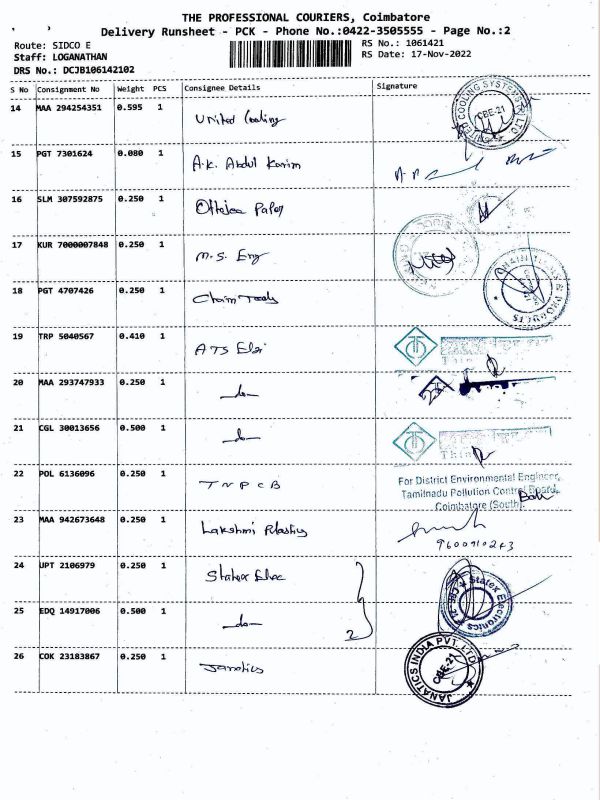 THE PROFESSIONAL COURIERS, Coimbatore
Delivery Runsheet - PCK - Phone No.:0422-3505555 - Page No.:2
Route: SIDCO E
RS No.: 1061421
Staff: LOGANATHAN
RS Date: 17-Nov-2022
DRS No.: DCJB106142102
S No Consignment No Weight PCS Consignee Details Signature
14 MAA 294254351 0.595 1 United Cooling
COOLING SYSTEMS CBE-21
15 PGT 7301624 0.080 1 A.K. Abdul Karim
16 SLM 307592875 0.250 1 Paper
17 KUR 7000007848 0.250 1 M.S. Eng
18 PGT 4707426 0.250 1 Chain Tools
CHAIN & PRODUCTS
19 TRP 5040567 0.410 1 ATS Elgi
20 MAA 293747933 0.250 1 -do-
21 CGL 30013656 0.500 1 -do-
22 POL 6136096 0.250 1 TNPCB
For District Environmental Engineer,
Tamilnadu Pollution Control Board,
Coimbatore (South).
23 MAA 942673648 0.250 1 Lakshmi Plastics
9600910243
24 UPT 2106979 0.250 1 Statex Elec
Statex Electronics
25 EDQ 14917006 0.500 1 -do- 2
26 COK 23183867 0.250 1 Janatics
JANATICS INDIA PVT. LTD CBE-21